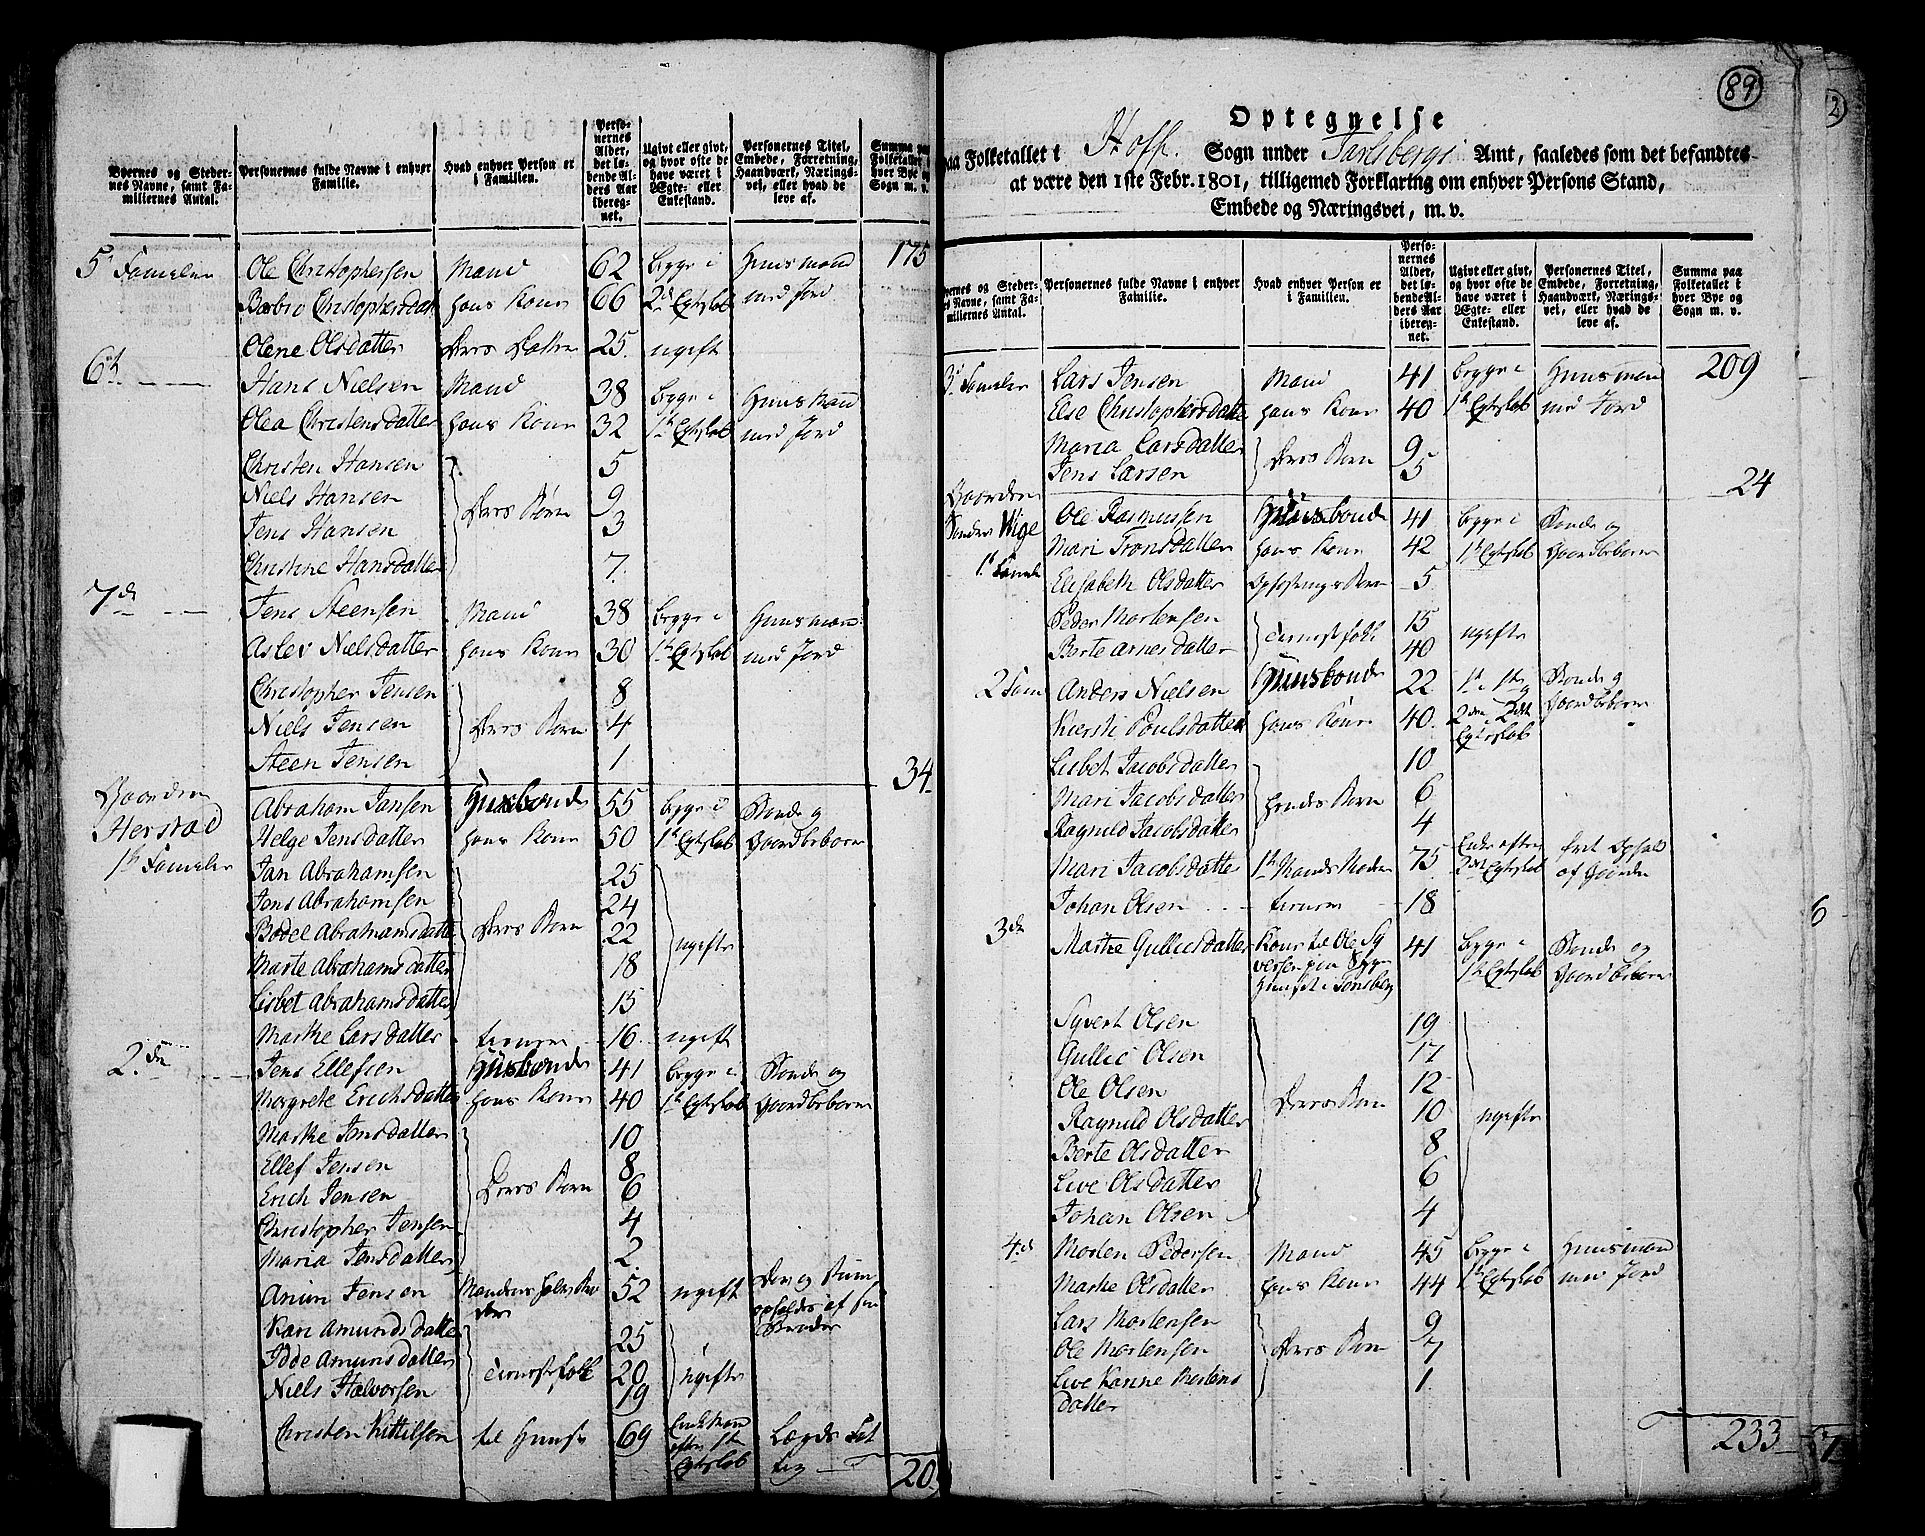 Byernes og Steder-
nes Navne, samt Fa-
miliernes Antal.
Personernes fulde Navne i enhver
Familie.
Hvad enhver Person er
i Familien.
Perso-
nernes
Alder,
det lø-
bende Al-
ders Aar
ibereg-
net.
Ugivt eller givt,
og hvor ofte de
have været i
Ægte- eller
Enkestand.
Personernes Titel,
Embede, Forretning,
Haandværk, Nærings-
vei, eller hvad de
leve af.
Summa paa
Folketallet i
hver Bye og
Sogn m. v.
175
5te Familier Ole Christophersen Mand 62 begge i Huusmand
Barbro Christophersdatt hans Kone 66 2det Egteskab med Jord
Olene Olsdatter Deres Datter 25 ugift
6te Hans Nielsen Mand 38 begge i Huusmand
Olea Christensdatter hans Kone 32 1te Egteskab med Jord
Christen Hansen 5
Niels Hansen Deres Børn 9
Jens Hansen 3
Christine Hansdatter 7
7de Jens Steensen Mand 38 begge i Huusmand
Aslev Nielsdatter hans Kone 30 1te Egteskab med Jord
Christopher Jensen 8
Niels Jensen Deres Børn 4
Steen Jensen 1
34
Gaarden Abraham Jansen Huusbonde 55 begge i Bonde og
Herstad Helge Jensdatter hans Kone 50 1te Egteskab Gaardbeboere
1te Familier Jan Abrahamsen 25
Jens Abrahamsen 24
Bodel Abrahamsdatter Deres Børn 22 ugifte
Marte Abrahamsdatter 18
Lisbet Abrahamsdatter 15
Marthe Larsdatter tienere 16 ugift
2den Jens Ellefsen Huusbonde 41 begge i Bonde og
Margrete Erichsdatter hans Kone 40 1te Egteskab Gaardbeboere
Marthe Jensdatter 10
Ellef Jensen 8
Erich Jensen Deres Børn 6
Christopher Jensen 4
Maria Jensdatter 2
Anun Jensen 52 ugift
Kari Amundsdatter 25
Idde Amunsdatter tienestefolk 20 ugifte
Niels Halvorsen 19
Christen Kittilsen til Huuse 69 Enkemand Lægds Fat
efter 1te
Egteskab tig
20
89
2
Optegnelse
paa Folketallet i Hoff Sogn under Jarlsbergs Amt, saaledes som det befandtes
at være den 1ste Febr. 1801, tilligemed Forklaring om enhver Persons Stand,
Embede og Næringsvei, m. v.
Byernes og Steder-
nes Navne, samt Fa-
miliernes Antal.
Personernes fulde Navne i enhver
Familie.
Hvad enhver Person er
i Familien.
Perso-
nernes
Alder,
det lø-
bende Al-
ders Aar
ibereg-
net.
Ugivt eller givt,
og hvor ofte de
have været i
Ægte- eller
Enkestand.
Personernes Titel,
Embede, Forretning,
Haandværk, Nærings-
vei, eller hvad de
leve af.
Summa paa
Folketallet i
hver Bye og
Sogn m. v.
3die Familier Lars Jensen Mand 41 begge i Huusmand 209
Else Christophersdatter hans Kone 40 1te Egteskab med Jord
Maria Larsdatter Deres Børn 9
Jens Larsen 5
24
Gaarden Ole Rasmussen Huusbonde 41 begge i Bonde og
Sønder Wige Mari Tronsdatter hans Kone 42 1te Egteskab Gaardbeboere
1te Familie Elisabeth Olsdatter Opfostrings Børn 5
Peder Mortensen tienestefolk 15 ugifte
Berte Arnesdatter 40
2 Fam Anders Nielsen Huusbonde 22 Bonde og
Kiersti Poulsdatter hans Kone 40 Gaardbeboere
Egteskab
Lisbet Jacobsdatter 10
Mari Jacobsdatter hendes Børn 6
Ragnild Jacobsdatter 4
Mari Jacobsdatter 1te Mands Moder 75 Enke efter
2det Egteskab af Gaarden
Johan Olsen tienere 18
3die Marthe Gulliesdatter Kone til Ole Sy 41 begge i Bonde og
1te Egteskab Gaardbeboere
Huuset i Tønsberg
Syvert Olsen 19
Gullic Olsen 17
Ole Olsen 12
Ragnild Olsdatter Deres Børn 10 ugifte
Berte Olsdatter 8
Live Olsdatter 6
Johan Olsen 4
4de Morten Pedersen Mand 45 begge i Huusmand
Marthe Olsdatter hans Kone 44 1te Egteskab med Jord
Lars Mortensen 9
Ole Mortensen Deres Børn 7
Live Karine Mortens 1
datter
233
6
7